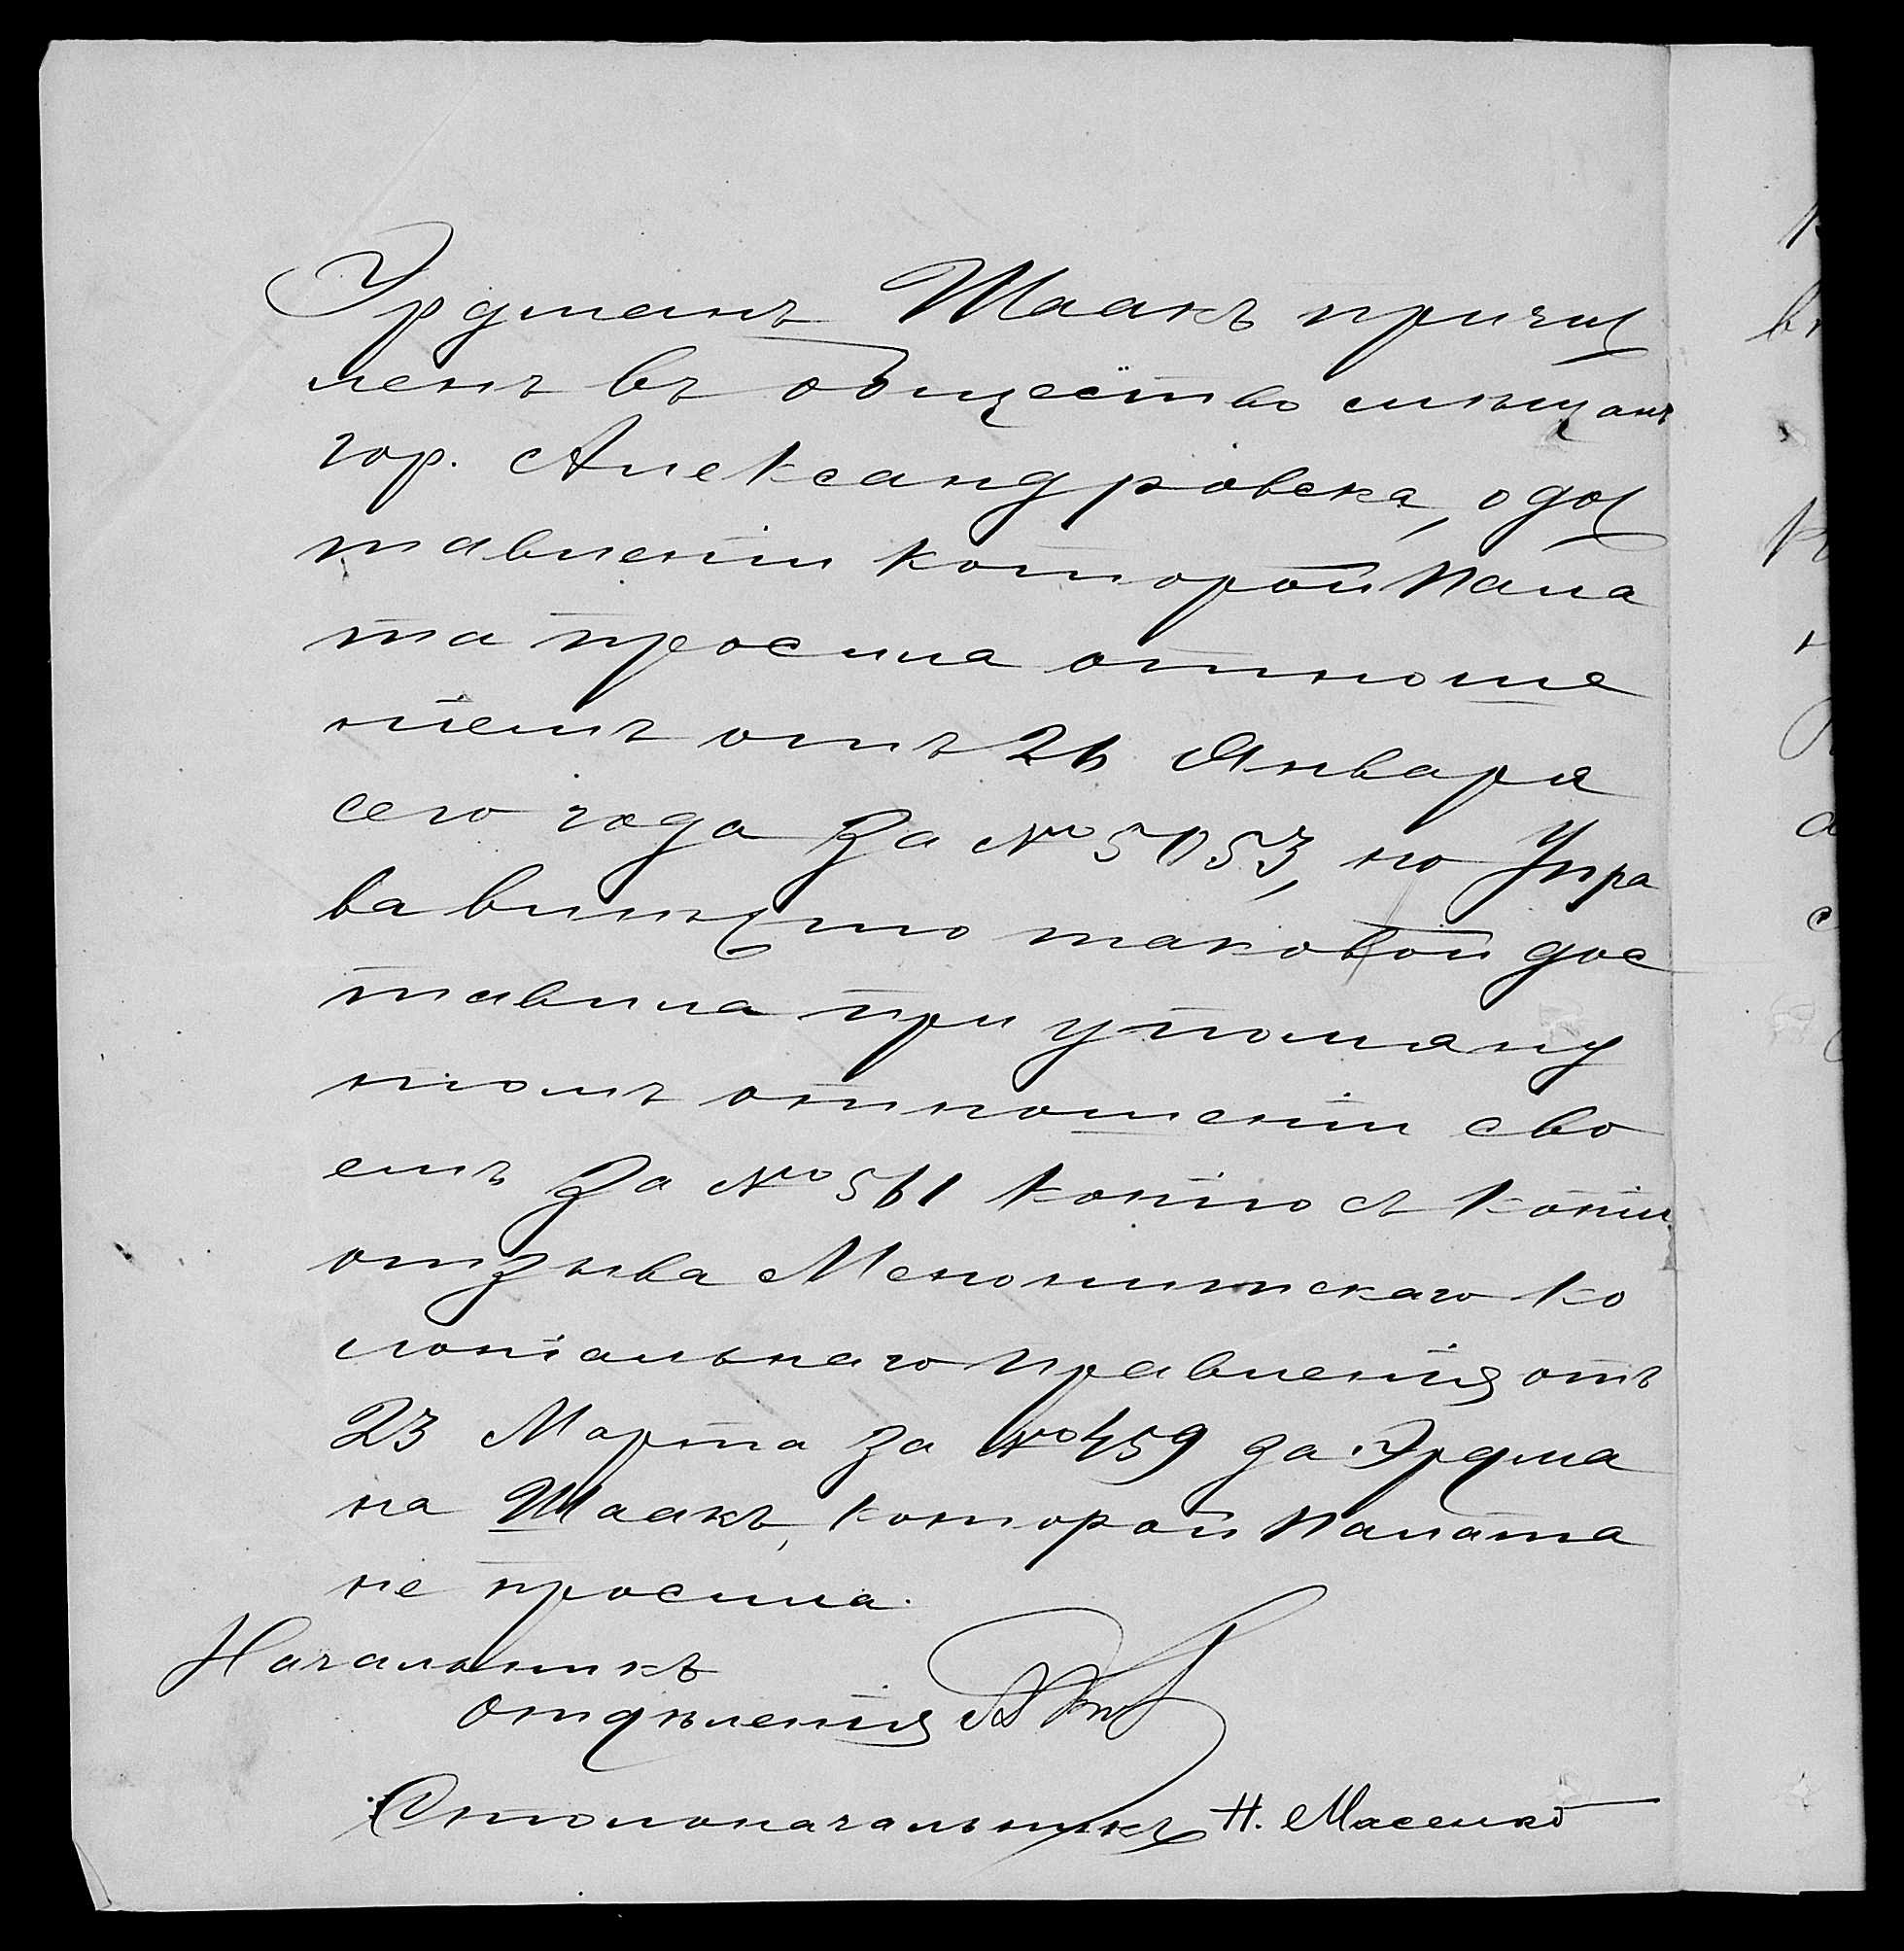 Эрдманъ Шаакъ причис
ленъ въ общество мѣщанъ
гор. Александровска, о дос
тавленіи которой Пала
та просила отноше
ніемъ отъ 26 Января
сего года за № 5053, но Упра
ва вмѣсто таковой дос
тавила при упомяну
томъ отношеніи сво
емъ за № 561 копію съ копіи
отзыва Менонитскаго Ко
лоніальнаго Правленія отъ
23 Марта за № 459 за Эрдма
на Шаакъ, которой Палата
не просила.
Начальникъ
Отдѣленія
Столоначальникъ Н.